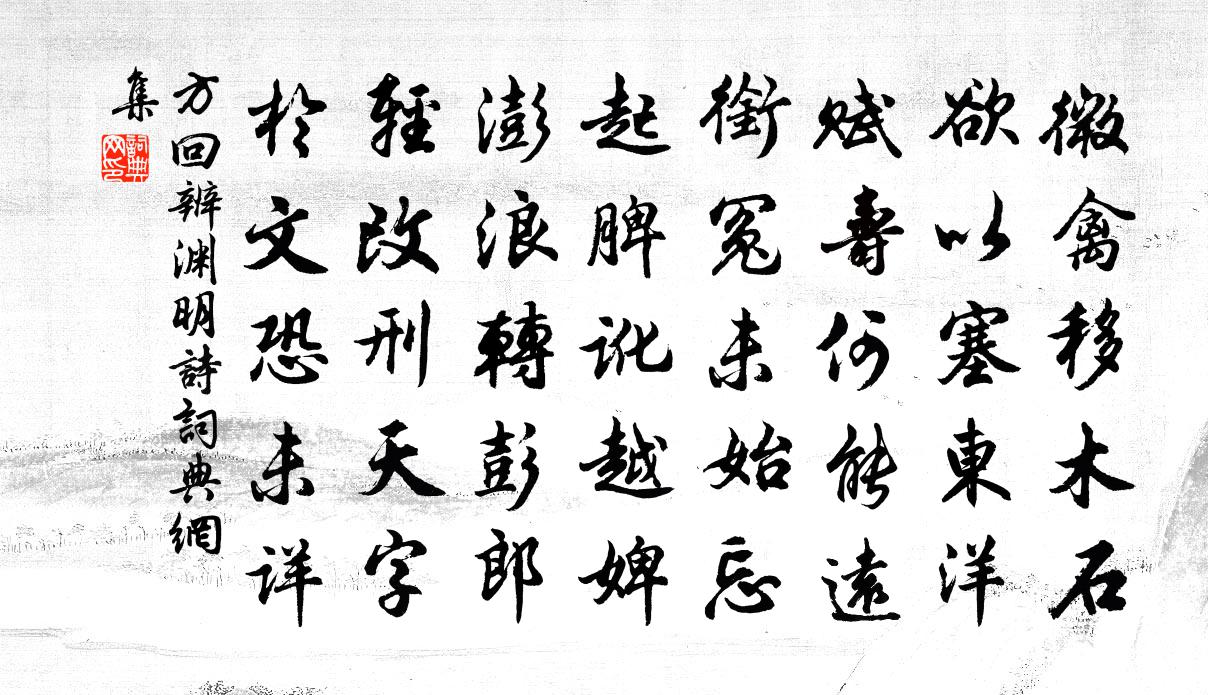 微禽移木石
欲以塞東洋
賦壽何能遠
銜冤未始忘
起脾訛越婢
澎浪轉彭郎
輕改刑天字
於文恐未详
方回辨淵明詩詞典網
集
詞典网印